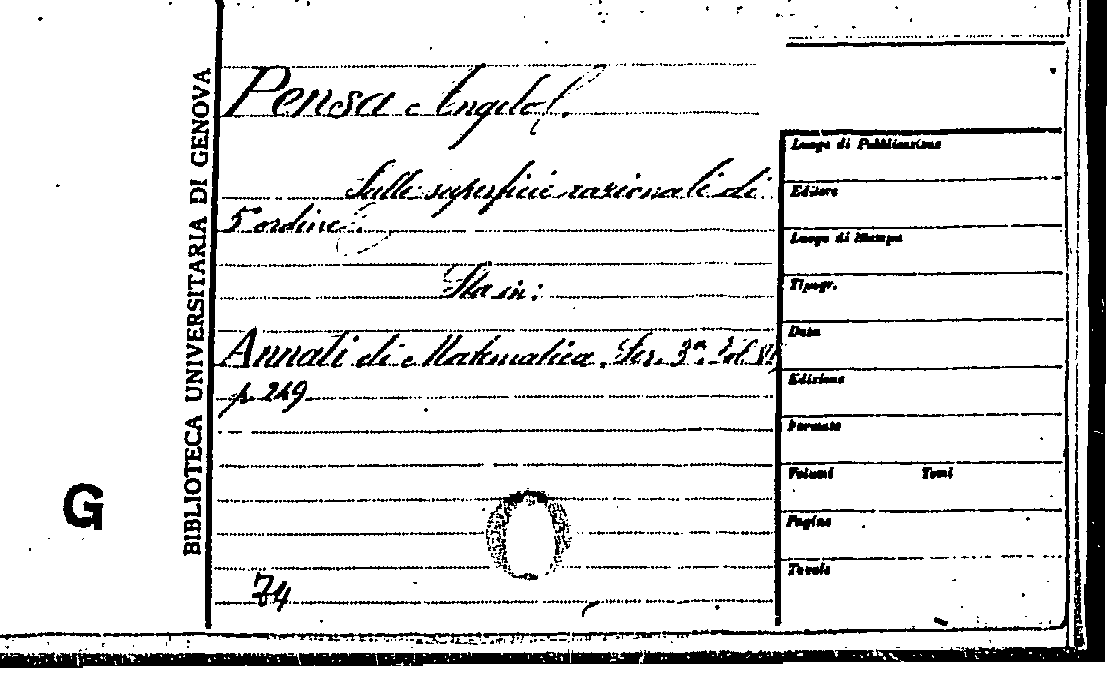 BIBLIOTECA UNIVERSITARIA DI GENOVA
G
Pensa Angelo.
Sulle superficie razionali di
5° ordine.
Sta in:
Annali di Matematica. Ser. 3ª. Vol. VI
p. 249
74
Luogo di Pubblicazione
Editore
Luogo di Stampa
Tipogr.
Data
Edizione
Formato
Volumi Tomi
Pagine
Tavole